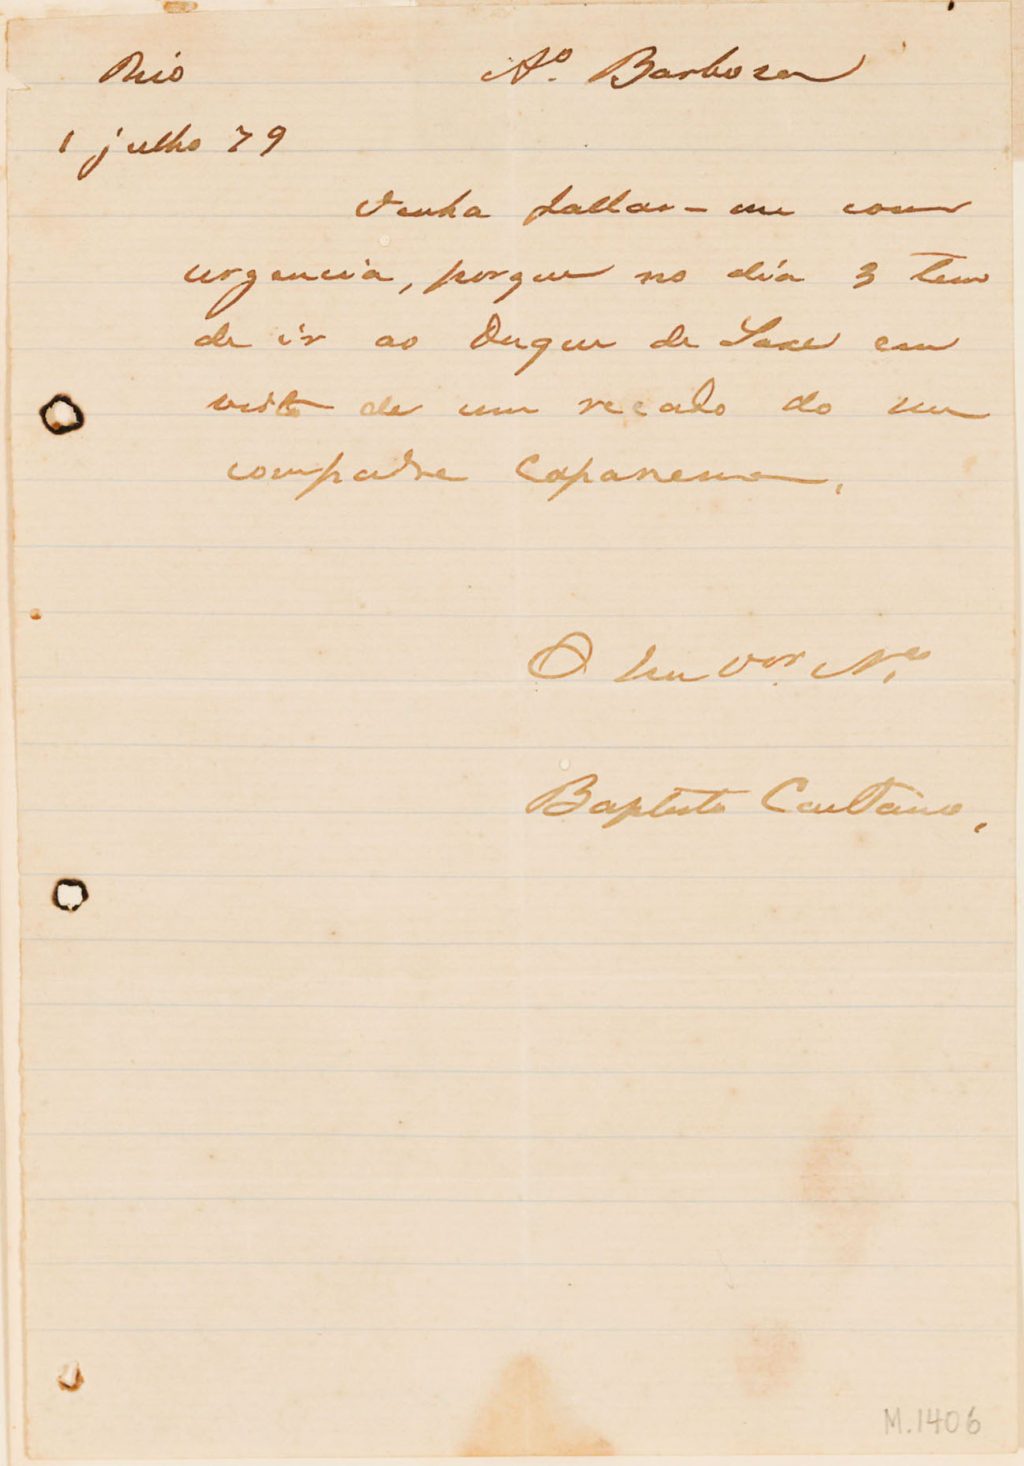 Rio Aº. Barbosa
1 julho 79
Venha fallar-me com
urgencia, porque no dia 3 tem
de ir ao Duque de Saxe em
vista de um recado do meu
compadre Capanema.
O seu
Baptista Caetano,
M.1406